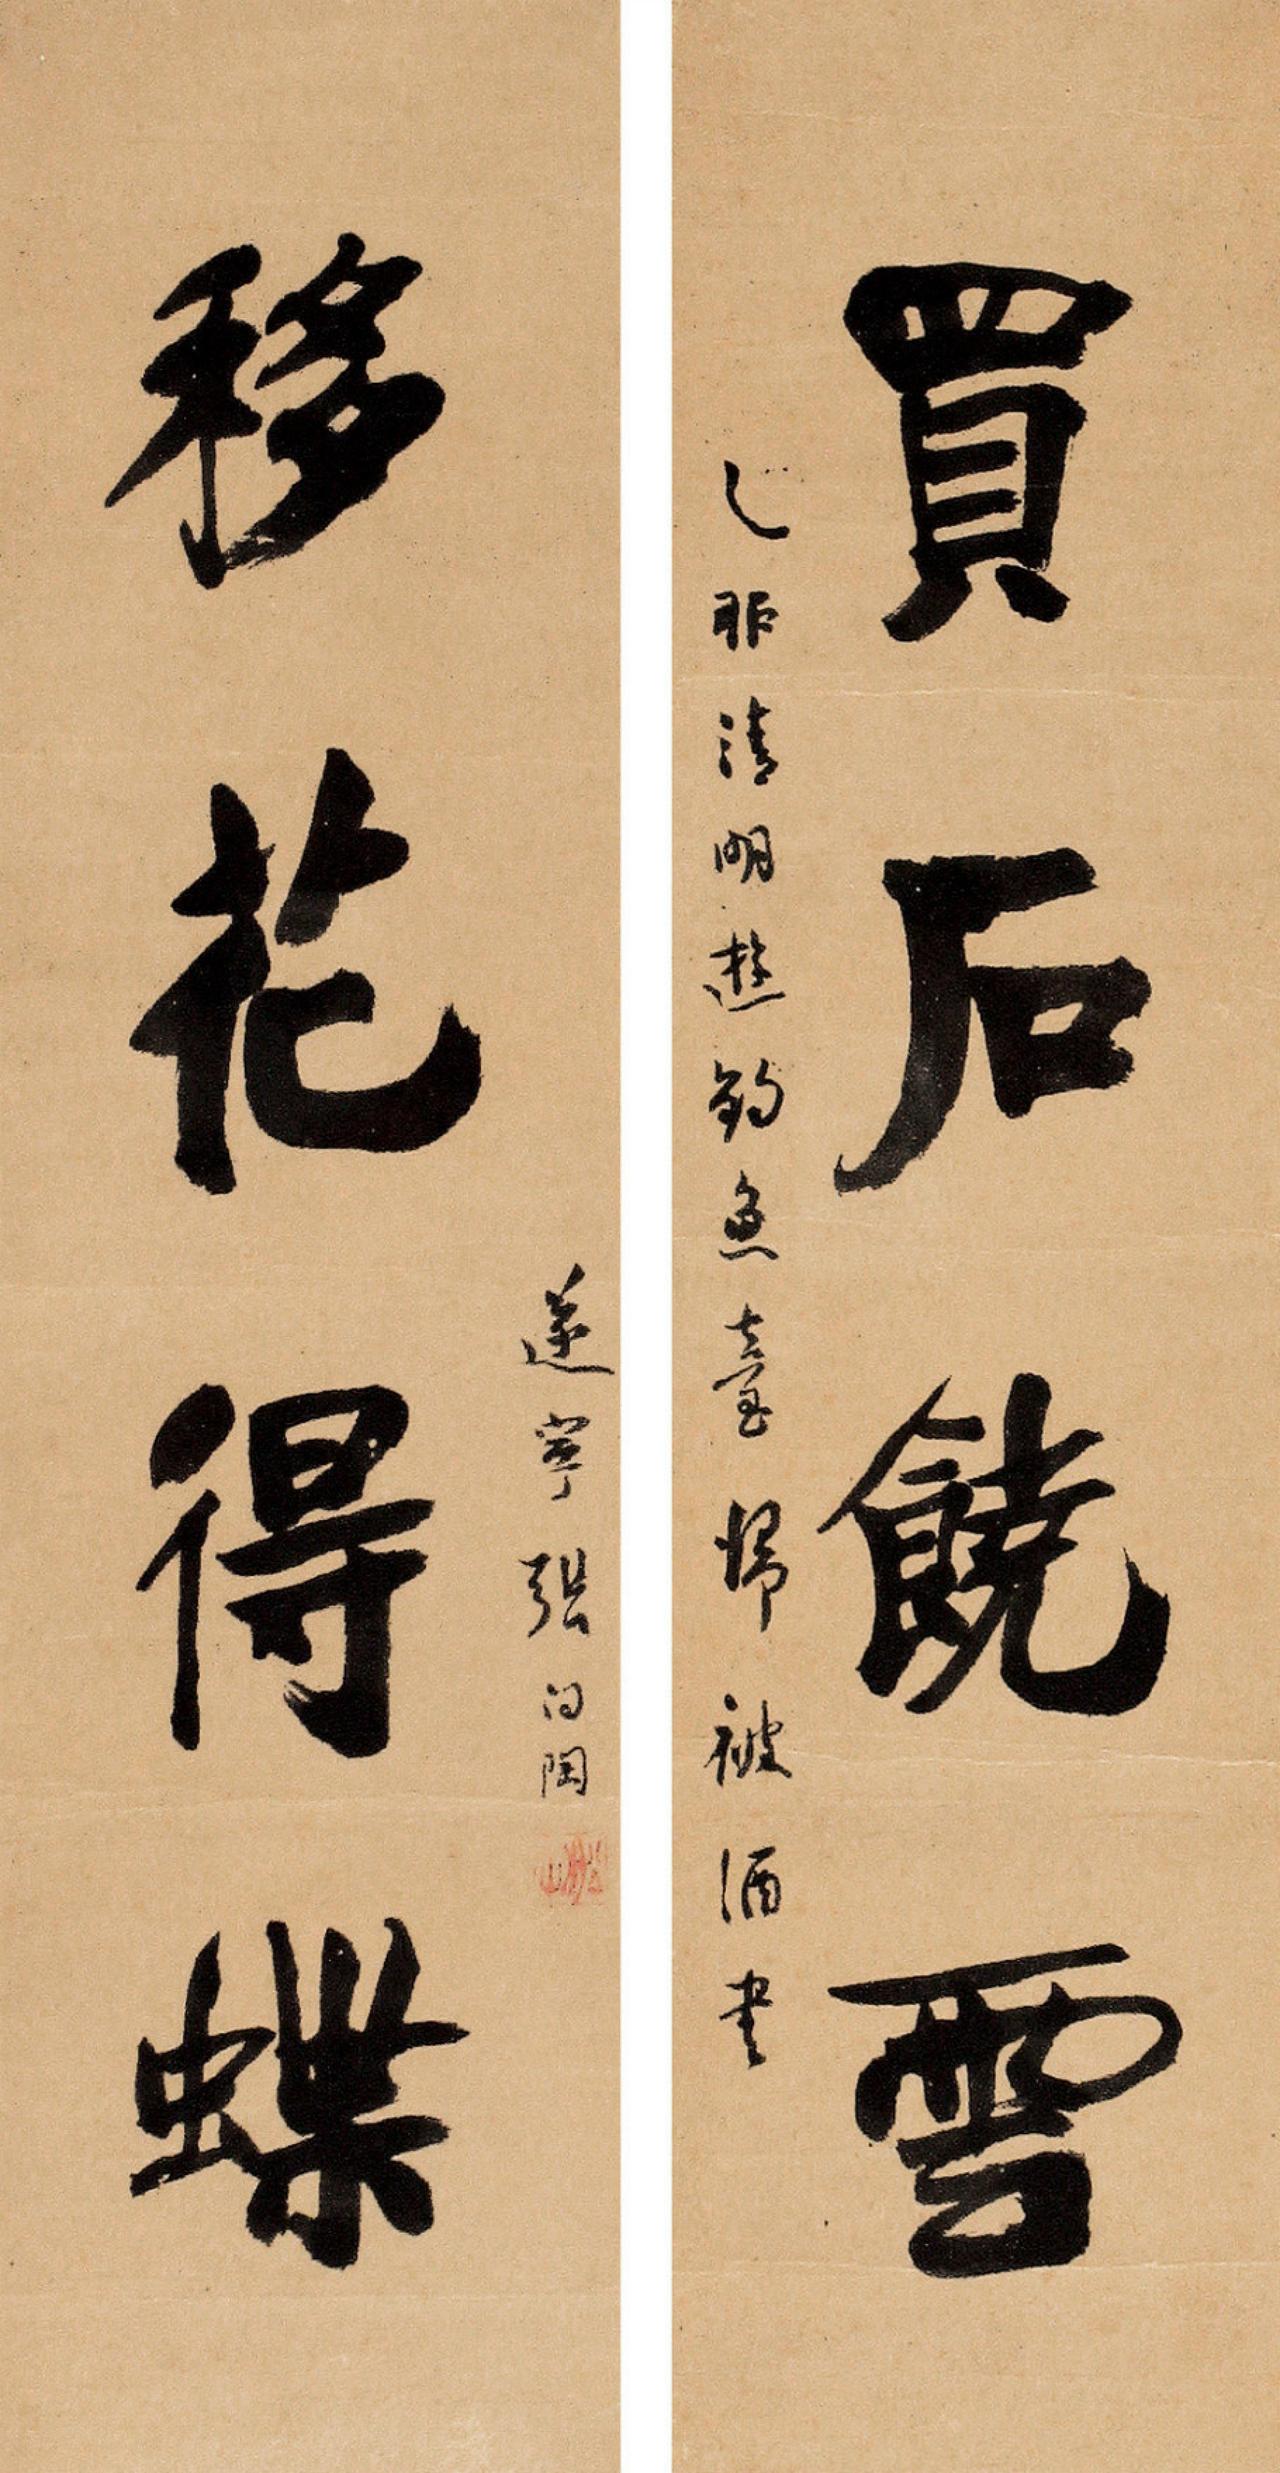 買石饒雲
乙卯清明遊釣魚臺歸被酒書
移花得蝶
遂寧張問陶